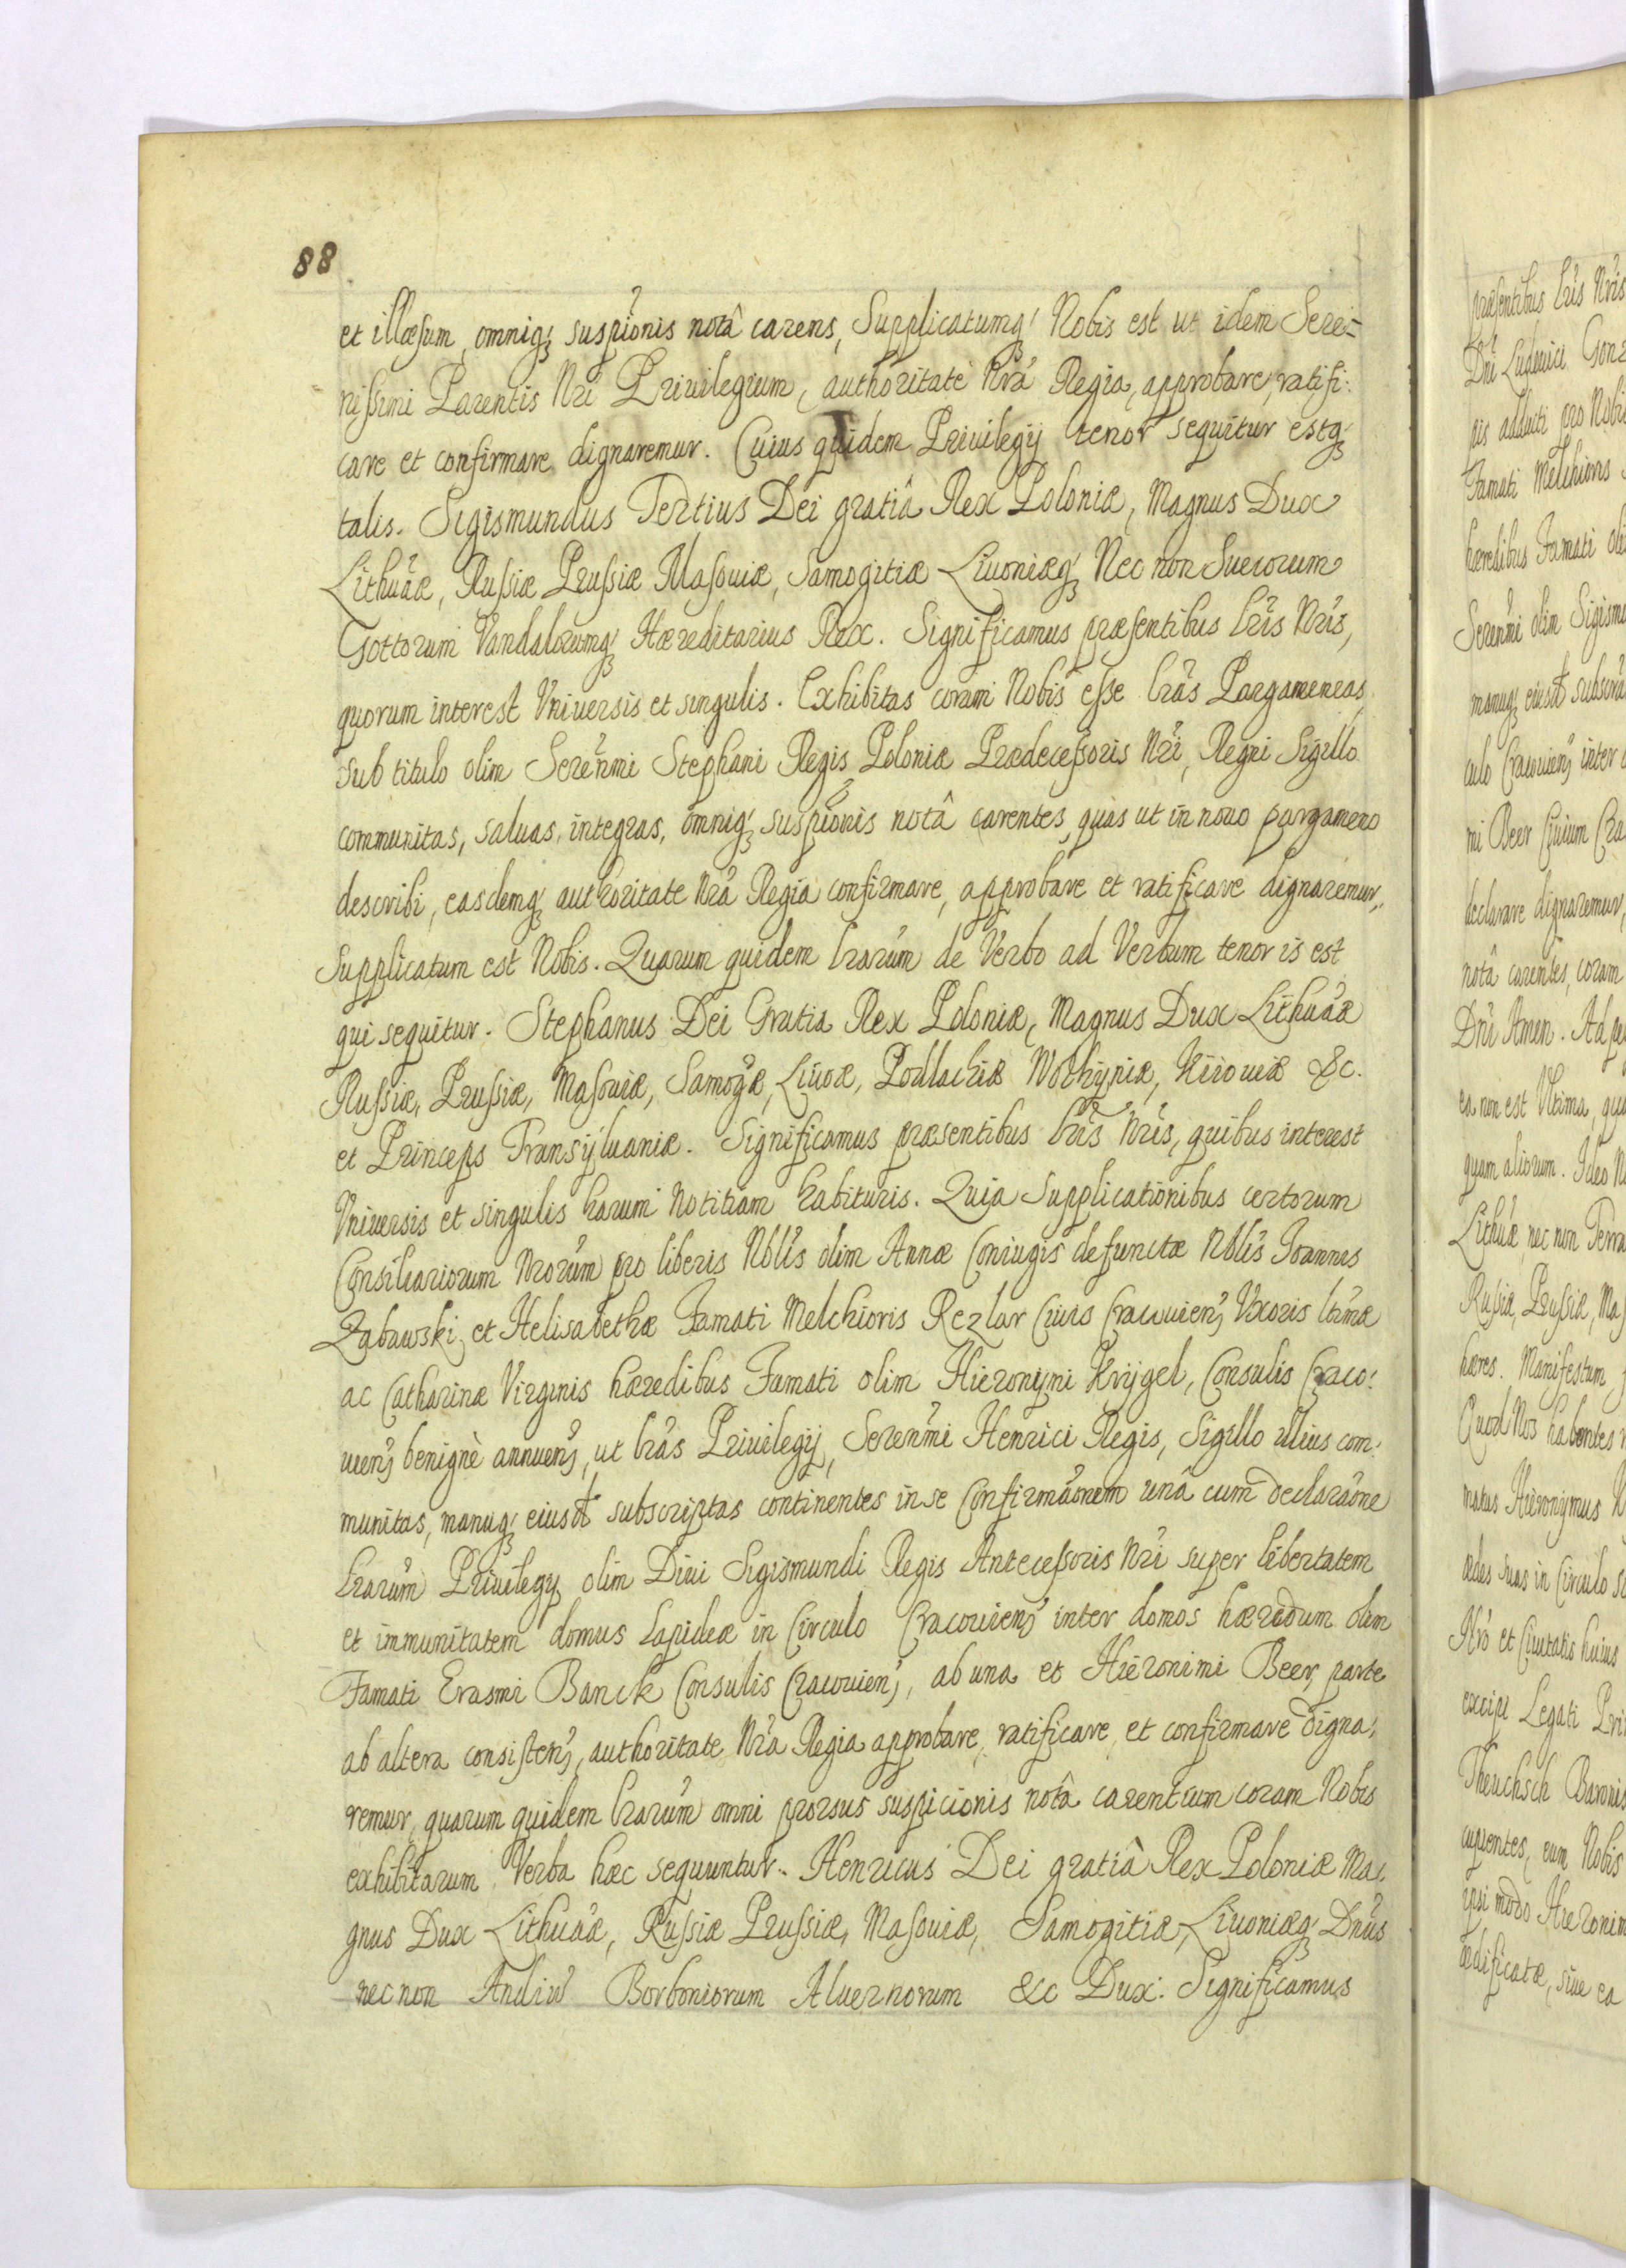 88
et illæsum, omniq; suspiõnis notâ carens, Supplicatumq; Nobis est ut idem Sere-
nissimi Parentis Nri Priuilegium, authoritate Nrâ Regia, approbare, ratifi-
care et confirmare dignaremur. Cuius quidem Priuilegij tenor sequitur estq;
talis. Sigismundus Tertius Dei gratiâ Rex Poloniæ, Magnus Dux
Lithuãæ, Russiæ Prussiæ Masouiæ, Samogitiæ Liuoniæq; Nec non Suecorum
Gottorum Vandalorumq; Hæreditarius Rex. Significamus præsentibus lris Nris,
quorum interest Vniuersis et singulis. Exhibitas coram Nobis esse lras Pargameneas,
sub titulo olim Serenmi Stephani Regis Poloniæ Prædecessoris Nri, Regni Sigillo
communitas, saluas, integras, omniq; suspiõnis notâ carentes, quas ut in nouo pargameno
describi, easdemq; authoritate Nrâ Regia confirmare, approbare et ratificare dignaremur,
supplicatum est Nobis. Quarum quidem lrarum de Verbo ad Verbum tenor is est
qui sequitur. Stephanus Dei Gratia Rex Poloniæ, Magnus Dux Lithuãæ
Russiæ, Prussiæ, Masouiæ, Samogæ, Liuoæ, Podlachiæ Wolhyniæ, Kiiouiæ &c.
et Princeps Transyluaniæ. Significamus præsentibus lris Nris, quibus interest
Vniuersis et singulis harum Notitiam habituris. Quia Supplicationibus certorum
Consiliariorum Nrorum pro liberis Nblis olim Annæ Coniugis defunctæ Nblis Joannis
Zabawski et Helisabethæ Famati Melchioris Rezlar Ciuis Cracouien; Vxoris ltimæ
ac Catharinæ Virginis hæredibus Famati olim Hieronymi Krygel, Consulis Craco-
uien; benignè annuen;, ut lras Priuilegij, Serenmi Henrici Regis, Sigillo illius com-
munitas, manuq; eiusd subscriptas continentes in se Confirmãonem unâ cum declarãone
lrarum Priuilegy olim Diui Sigismundi Regis Antecessoris Nri super libertatem
et immunitatem domus lapideæ in Circulo Cracouien; inter domos hæredum olim
Famati Erasmi Banck Consulis Cracouien;, ab una et Hieronimi Beer, parte
ab altera consisten;, authoritate Nra Regia approbare, ratificare, et confirmare digna-
remur, quarum quidem lrarum omni prorsus suspicionis notâ carentium coram Nobis
exhibitarum Verba hæc sequuntur. Henricus Dei gratiâ Rex Poloniæ Ma-
gnus Dux Lithuãæ, Russiæ Prussiæ, Masouiæ, Samogitiæ, Liuoniæq; Dnus
nec non Andiu Borboniorum Aluernorum &c Dux. Significamus
præsentibus lris Nris
Dni Ludouici Gonz
pis adducti pro Nobis
Famati Melchioris
hæredibus Famati oli
Serenmi olim Sigismu
manuq; eiusd subscri
culo Cracouien; inter
mi Beer Ciuium Cra
declarare dignaremur,
notâ carentes, coram
Dni Amen. Ad pe
ea non est Vltima, qua
quam aliorum. Ideo N
Lithuæ, nec non Terra
Russiæ, Prussiæ, Mas
hæres. Manifestum
Quod Nos habentes
matus Hieronymus K
ædes suas in Circulo
Nro et Ciuitatis huius
excipi Legati Pri
Theuchsch Baronis
cupientes, eum Nobis
ipsi modo Hieronim
ædificatæ, siue ea